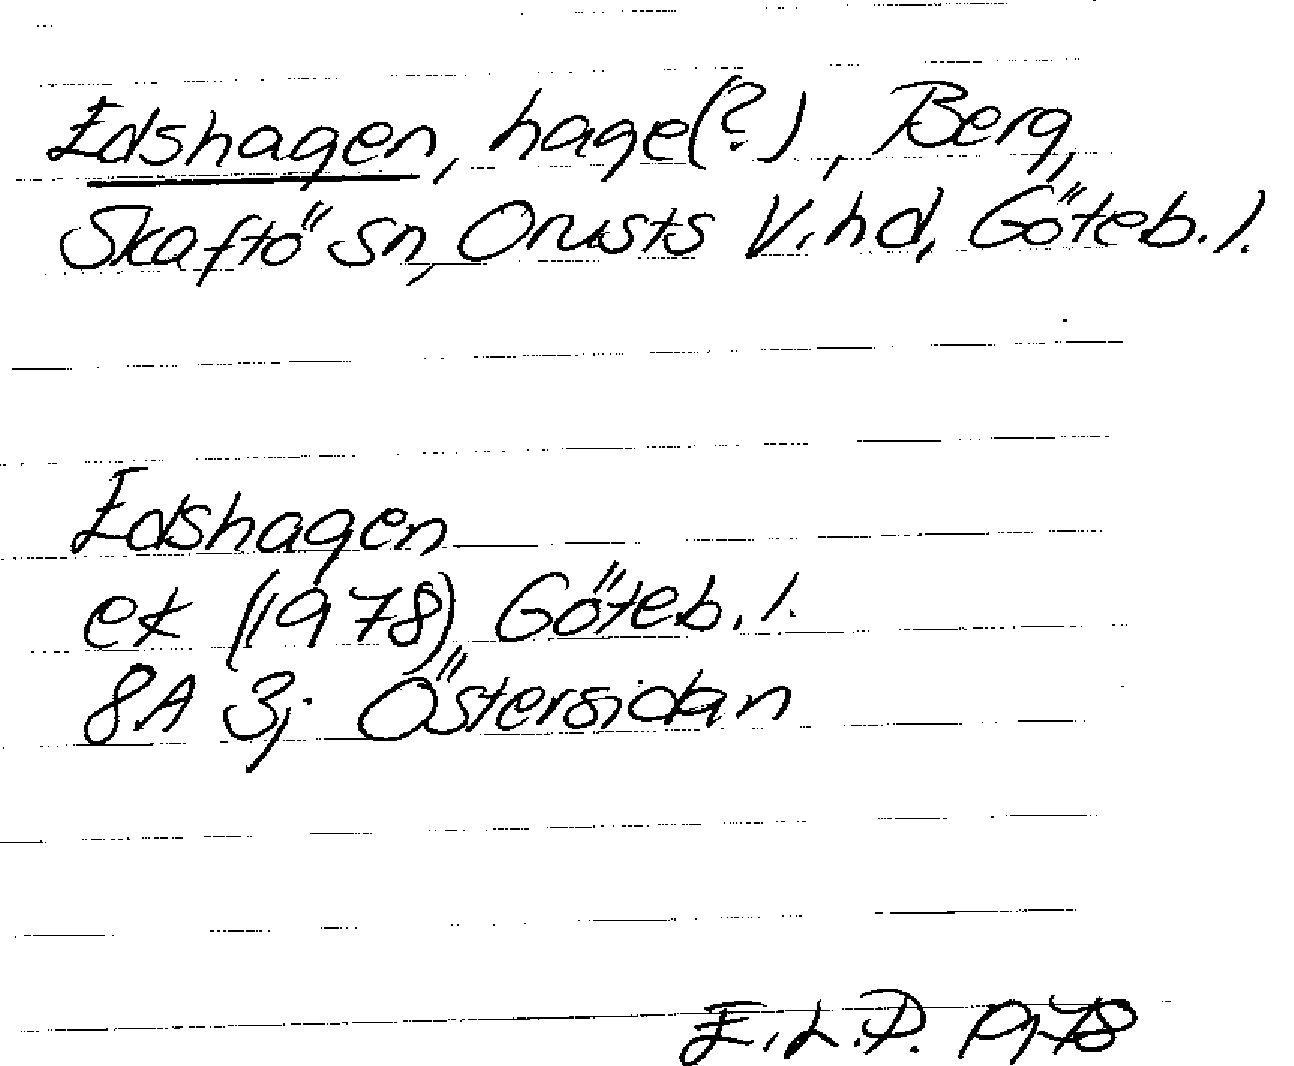 Edshagen, hage(?), Berg,
Skaftö sn, Orusts V. hd, Göteb. l.
Edshagen
ek (1978) Göteb. l.
8A 3j Östersidan
E. L. P. 1978